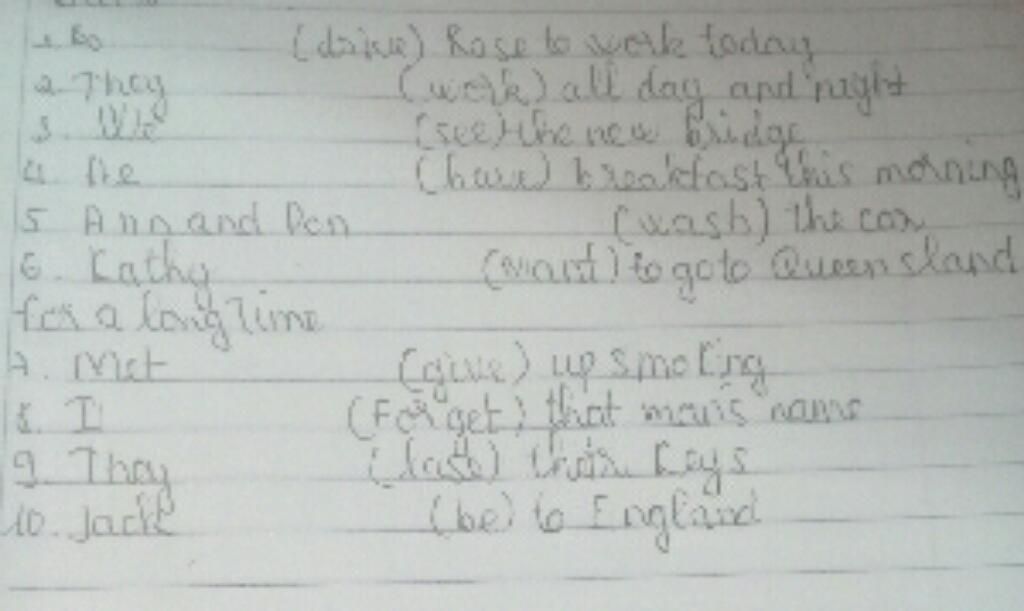 1. Bo (drive) Rose to work today
2. They (work) all day and night
3. We (see) the new bridge
4. He (have) breakfast this morning
5. Ann and Don (wash) the car
6. Kathy (want) to go to Queensland
for a long time
7. (give) up smoking
8. I (Forget) that man's name
9. They (lose) their keys
10. Jack (be) to England